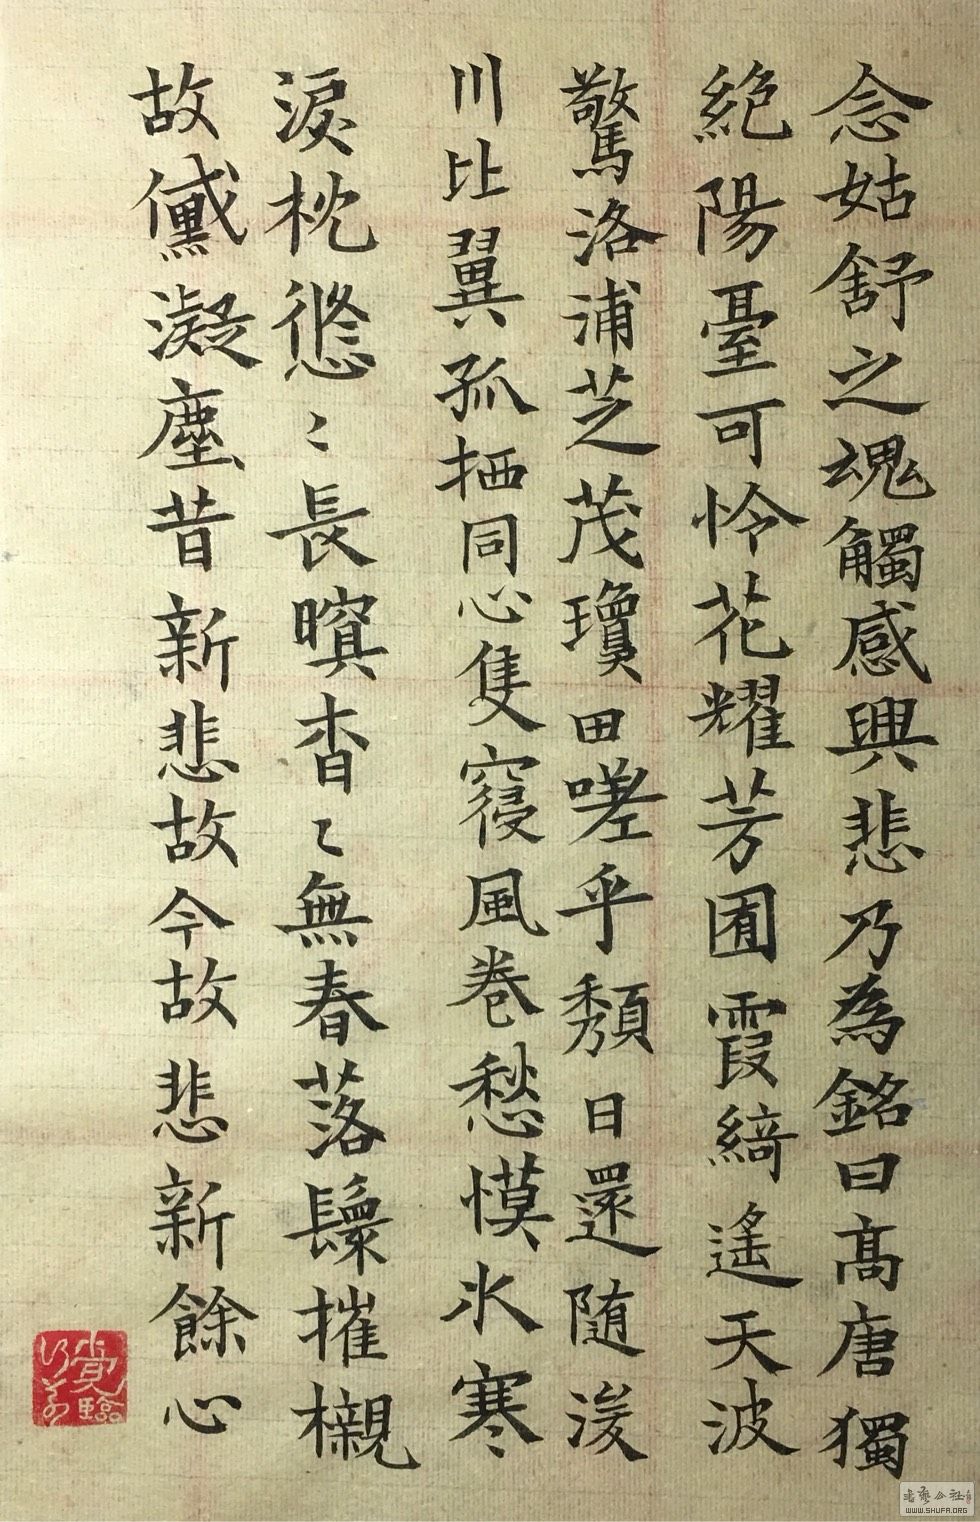 念姑舒之魂觸感興悲乃為銘曰高唐獨
絕陽臺可怜花耀芳囿霞綺遙天波
驚洛浦芝茂瓊田嗟乎頹日還隨浚
川比翼孤栖同心隻寢風卷愁慔氷寒
淚枕悠〻長暝杳〻無春落鬟摧櫬
故黛凝塵昔新悲故今故悲新餘心
書藝公社
WWW.SHUFA.ORG